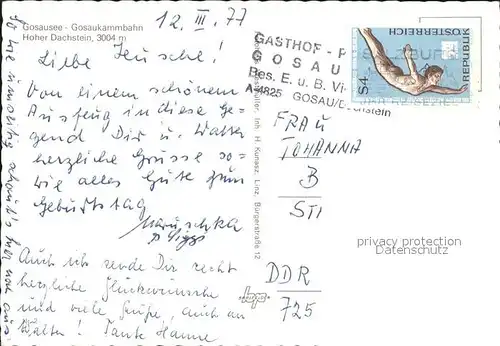 12. III. 77
Gosausee - Gosaukammbahn
Hoher Dachstein, 3004 m
Liebe Heusche!
Von einem schönem
Ausflug in diese Ge-
gend Dir u. Walter
herzliche Grüsse so-
wie alles Gute zum
Geburtstag
Maruschka
Auch ich sende Dir recht
herzliche Glückwünsche
und viele Grüße, auch an
Walter! Tante Hanne
Inh. H. Kunasz, Linz, Bürgerstraße 12
GASTHOF - P
GOSAU
Bes. E. u. B. Vi
A-4825 GOSAU/Dachstein
S4
REPUBLIK
ÖSTERREICH
FRAU
JOHANNA
B
STI
privacy protection
Datenschutz
DDR
725